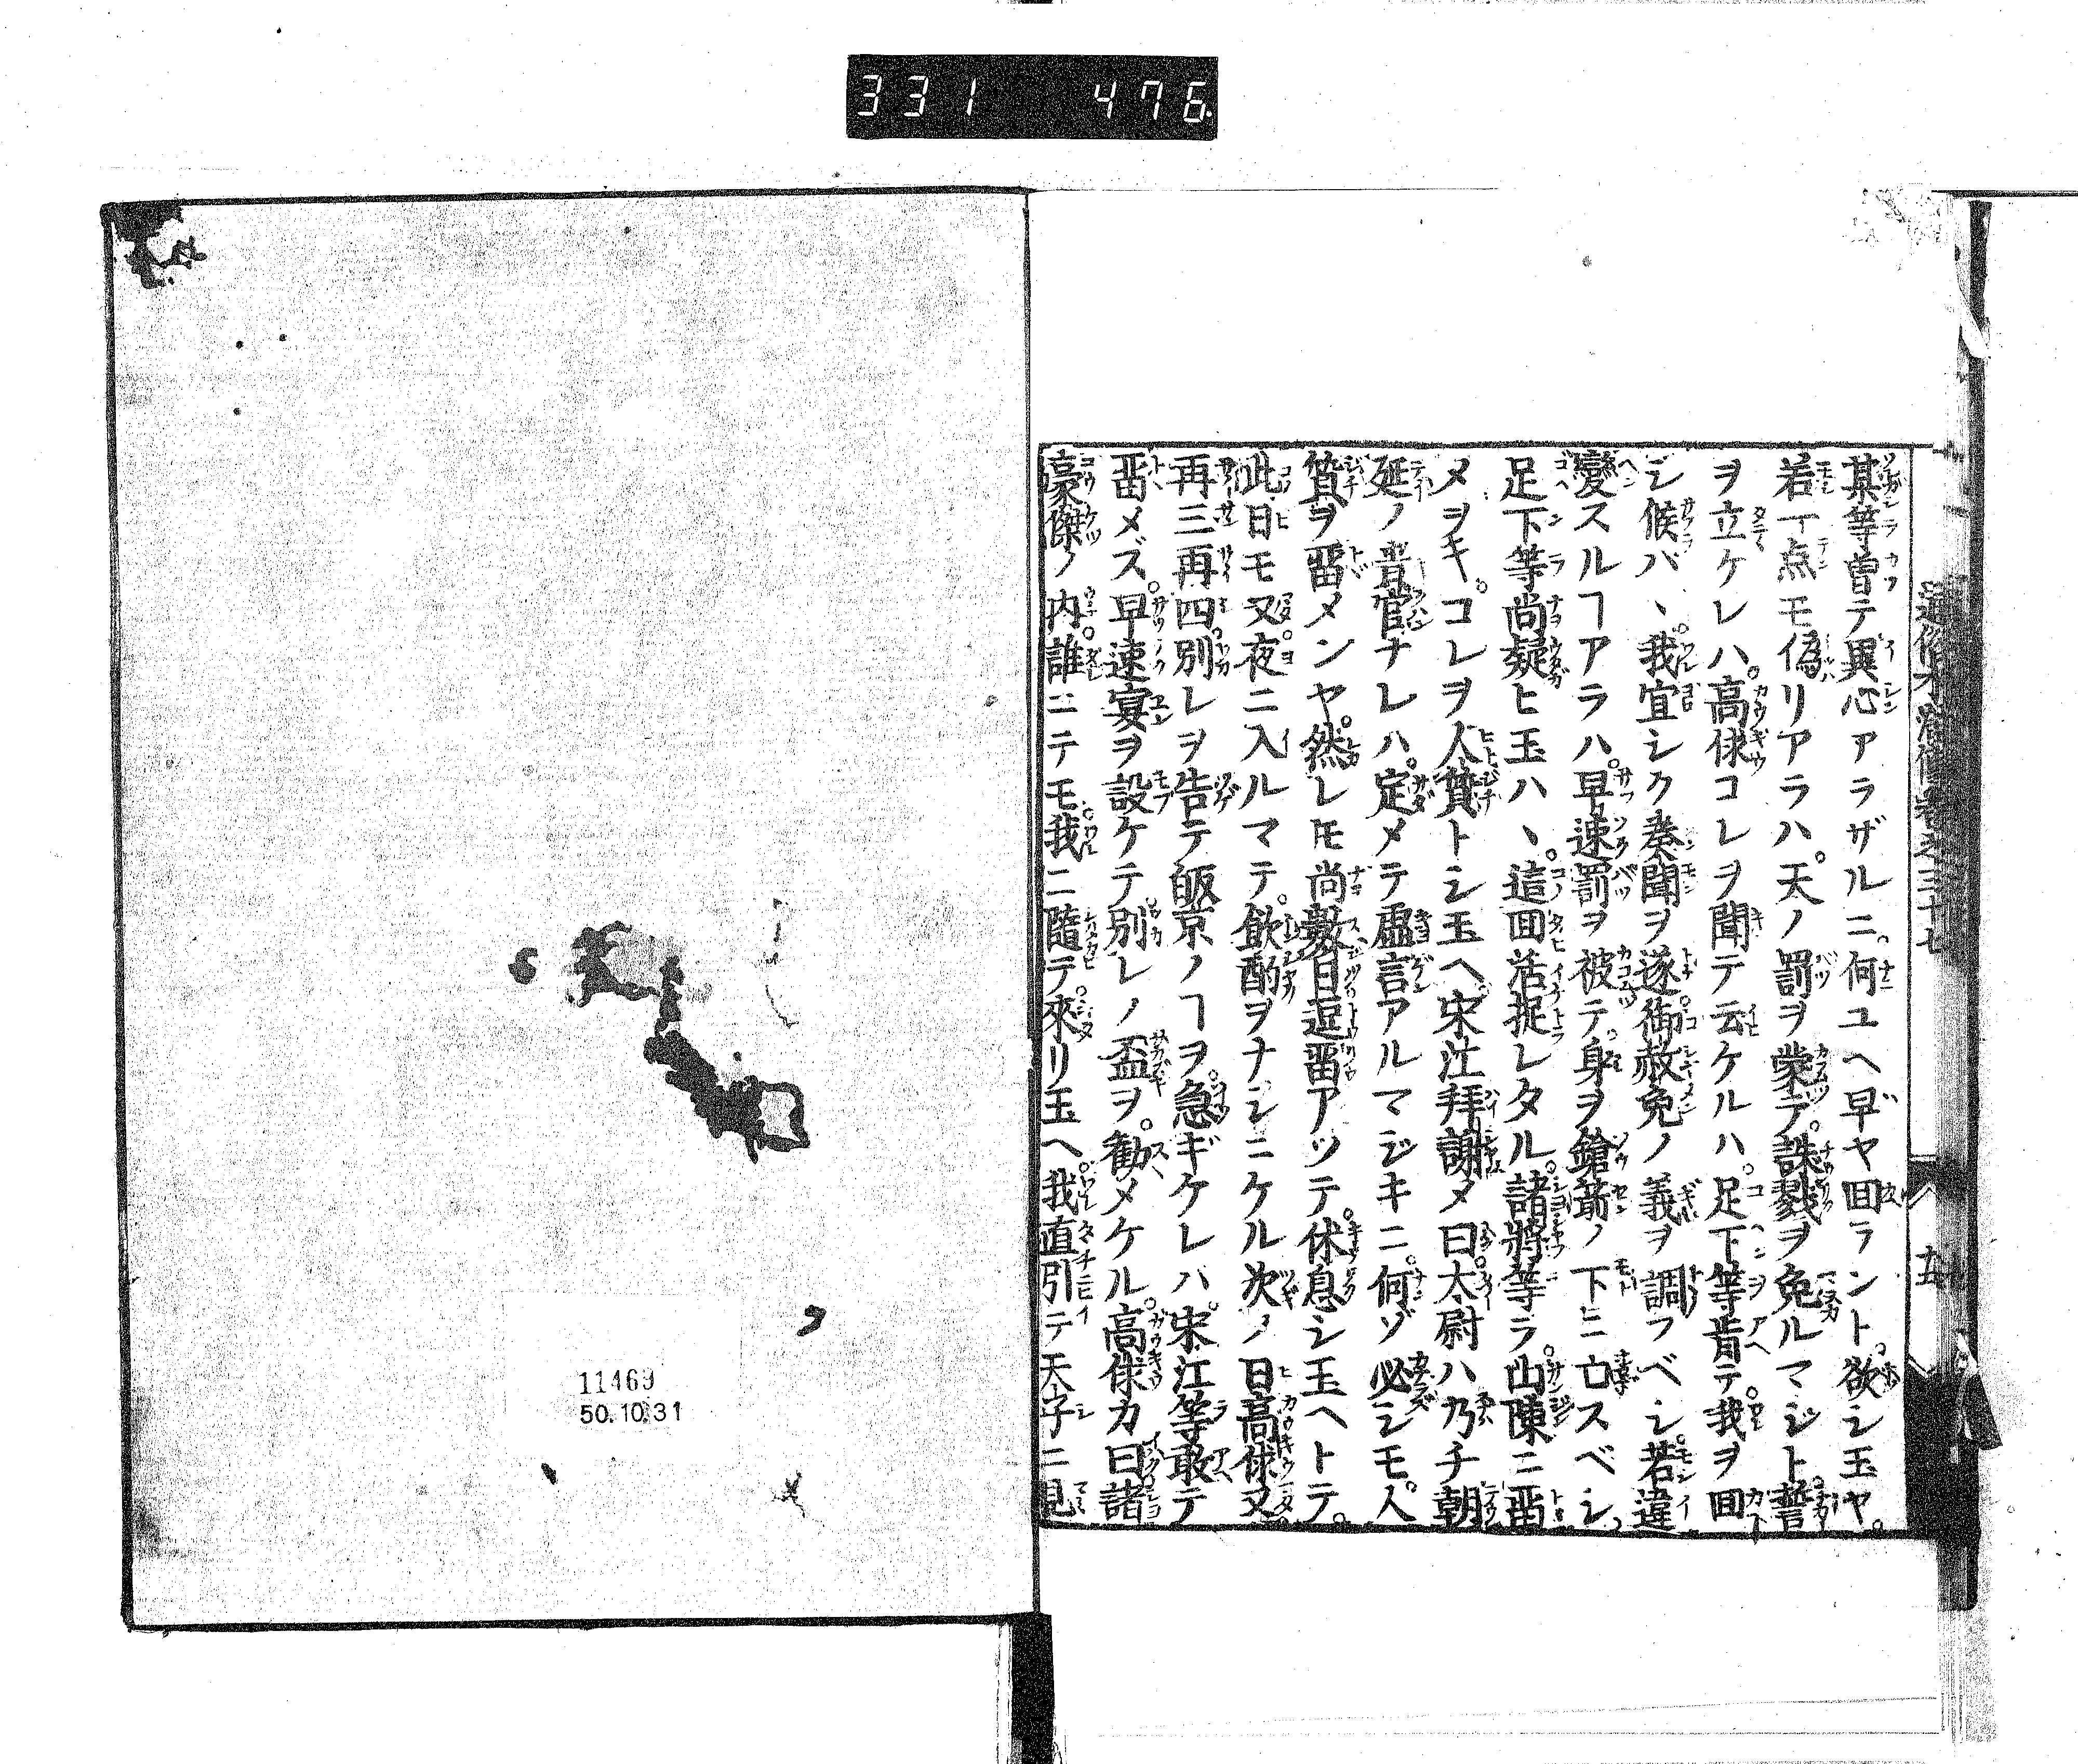 331 476
通俗水滸傳卷之三十七
五
某等曽テ異心アラザルニ。何ユヘ早ヤ回ラント。欲シ玉ヤ。
若一点モ偽リアラハ。天ノ罰ヲ蒙テ。誅戮ヲ免ルマジト。誓
ヲ立ケレハ。高俅コレヲ聞テ云ケルハ。足下等肯テ。我ヲ回
シ候ハヾ。我宜シク奏聞ヲ遂。御赦免ノ義ヲ調フベシ。若違
變スルヿアラハ。早速罰ヲ被テ。身ヲ鎗箭ノ下ニ亡スベシ。
足下等尚疑ヒ玉ハヾ。這回活捉レタル。諸將等ラ。山陳ニ畱
メヲキ。コレヲ人質トシ玉ヘ。宋江拜謝メ曰。太尉ハ乃チ朝
延ノ貴官ナレハ。定メテ虚言アルマジキニ。何ゾ必シモ。人
質ヲ畱メンヤ。然レ𪜈尚數日逗畱アツテ。休息シ玉ヘトテ。
此日モ又夜ニ入ルマテ。飲酌ヲナシニケル。次ノ日高俅又
再三再四。別レヲ告テ皈京ノヿヲ。急ギケレハ。宋江等敢テ
畱メズ。早速宴ヲ設ケテ。別レノ盃ヲ。勧メケル。高俅カ曰。諸
豪傑ノ内。誰ニテモ。我ニ隨テ。來リ玉ヘ。我直引テ天子ニ見
11469
50.10.31